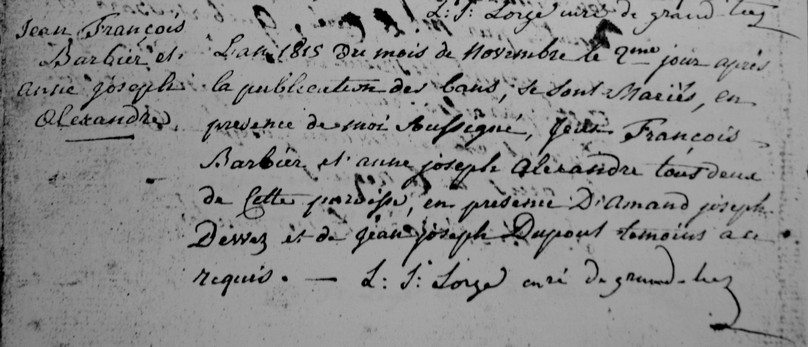 L: J: Lorge curé de grand-leez
Jean François
Barbier et
anne joseph
Alexandre.
L'an 1815 Du mois de Novembre le 2me jour après
la publication des bans, se sont Mariés, en
presence de moi Soussigné, Jean François
Barbier et anne joseph Alexandre tous deux
de Cette paroisse, en presence D'amand joseph
Dewez et de Jean joseph Dupont temoins a ce
requis. — L: J: Lorge curé de grand-leez